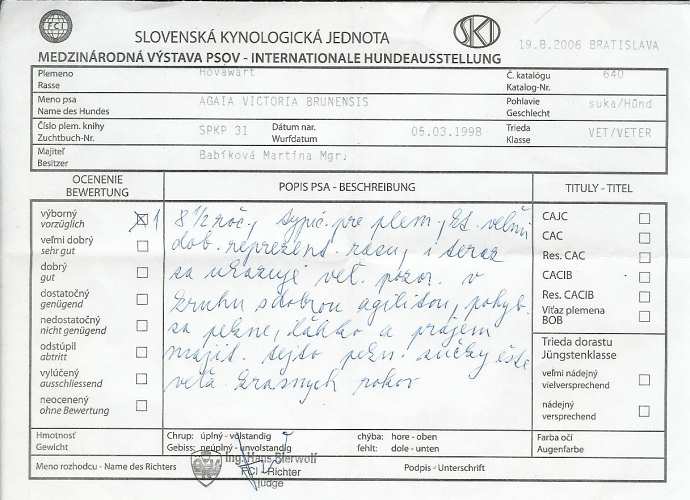 FCI
SLOVENSKÁ KYNOLOGICKÁ JEDNOTA
SKJ
19.8.2006 BRATISLAVA
MEDZINÁRODNÁ VÝSTAVA PSOV - INTERNATIONALE HUNDEAUSSTELLUNG
Plemeno Hovawart Č. katalógu 640
Rasse Katalog-Nr.
Meno psa AGAIA VICTORIA BRUNENSIS Pohlavie suka/Hünd
Name des Hundes Geschlecht
Číslo plem. knihy SPKP 31 Dátum nar. 05.03.1998 Trieda VET/VETER
Zuchtbuch-Nr. Wurfdatum Klasse
Majiteľ Babíková Martina Mgr.
Besitzer
OCENENIE
BEWERTUNG
výborný 1
vorzüglich
veľmi dobrý
sehr gut
dobrý
gut
dostatočný
genügend
nedostatočný
nicht genügend
odstúpil
abtritt
vylúčený
ausschliessend
neocenený
ohne Bewertung
POPIS PSA - BESCHREIBUNG
8 1/2 roč., typic. pre plem., veľmi
dob. reprezent. rasu, i teraz
sa ukazuje veľ. pozor. v
kruhu s dobrou agilitou, pohyb.
sa pekne, ľahko a prajem
majit. tejto pekn. sučky ešte
veľa krasnych rokov
TITULY - TITEL
CAJC
CAC
Res. CAC
CACIB
Res. CACIB
Víťaz plemena
BOB
Trieda dorastu
Jüngstenklasse
veľmi nádejný
vielversprechend
nádejný
versprechend
Hmotnosť Chrup: úplný - vollständig chýba: hore - oben Farba očí
Gewicht Gebiss: neúplný - unvolständig fehlt: dole - unten Augenfarbe
Meno rozhodcu - Name des Richters Podpis - Unterschrift
Ing. Hans Bierwolf
FCI - Richter
Judge